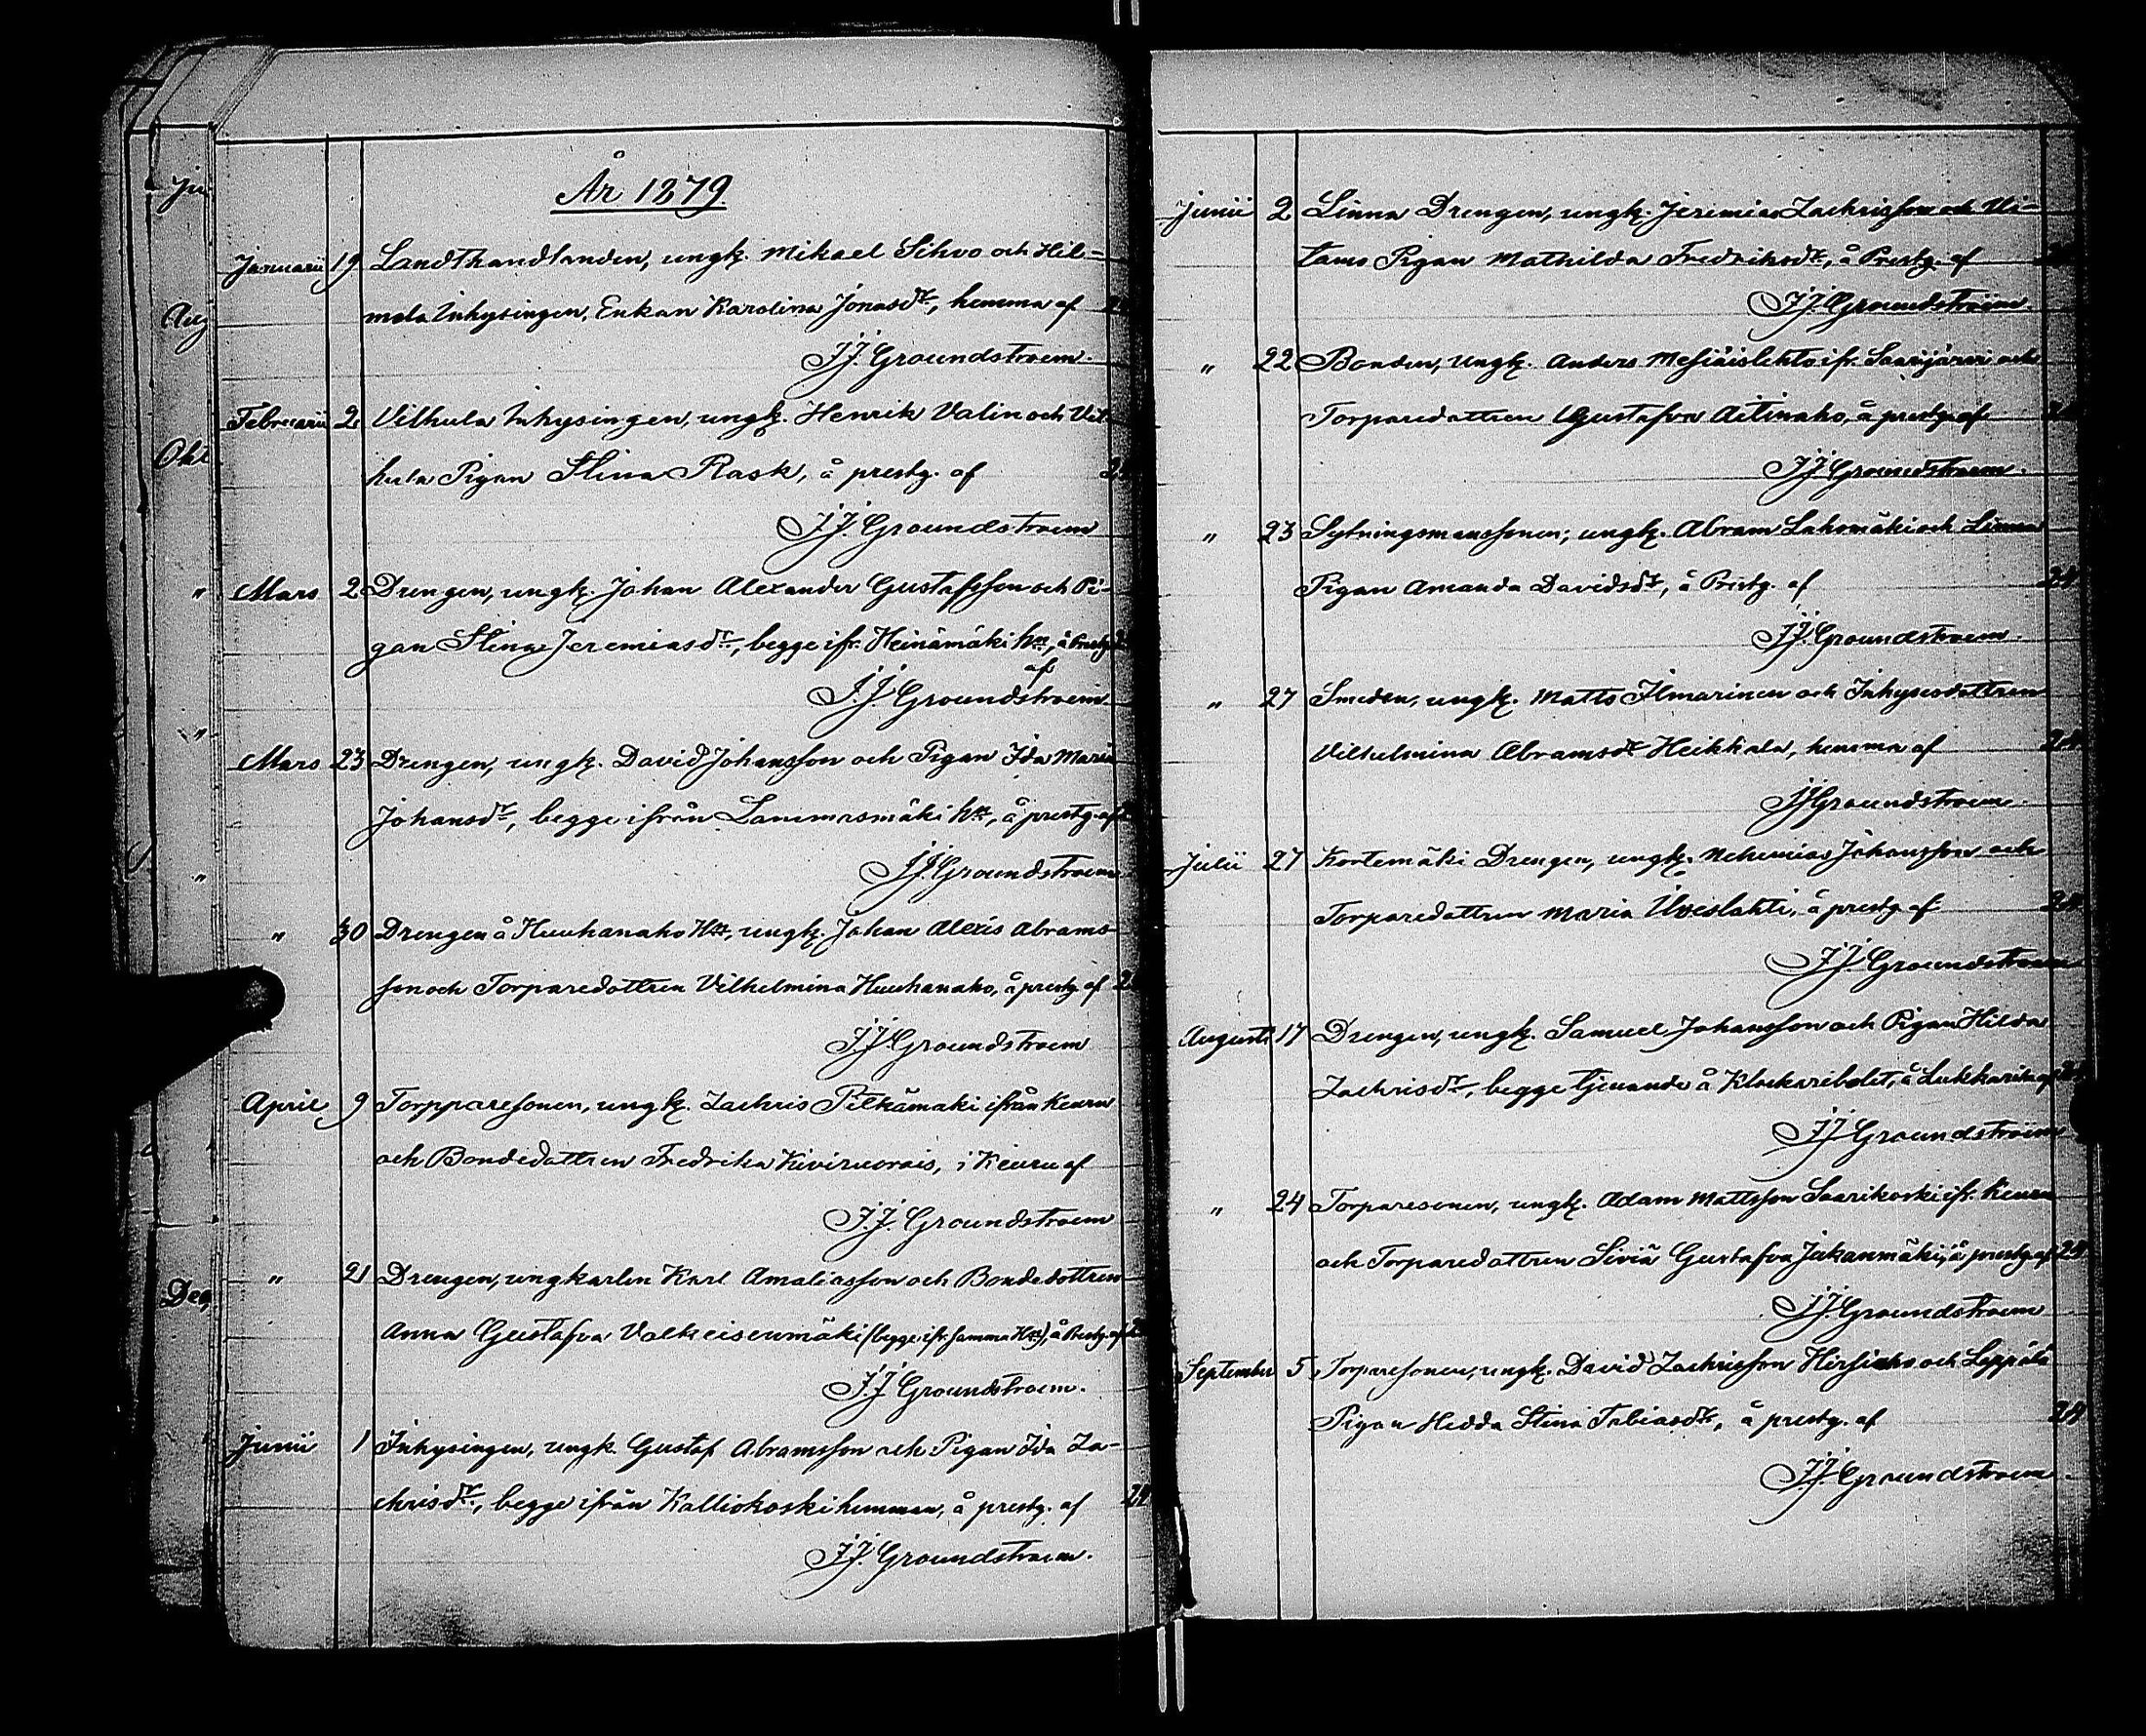 År 1879.
Januarii 19 Landthandlanden, ungk. Mikael Sihvo och Hil-
mola Inhysingen, Enkan Karolina Jonasdr, hemma af
J.J. Groundstroem.
Februarii 2 Vilhula Inhysingen, ungk. Henrik Valin och Vil
hula Pigan Stina Rask, å prestg. af
J.J. Groundstroem
Mars 2 Drengen, ungk. Johan Alexander Gustafsson och Pi-
gan Stina Jeremiasdr, begge ifr. Heinämäki hn, å Prestg.
af
J.J. Groundstroem.
Mars 23 Drengen, ungk. David Johansson och Pigan Ida Maria
Johansdr, begge ifrån Lammasmäki hn, å prestg. af
J.J. Groundstroem
" 30 Drengen å Huuhanaho Hn, ungk. Johan Alexis Abrams-
son och Torparedottren Vilhelmina Huuhanaho, å prestg. af
J.J. Groundstroem
April 9 Torpparesonen, ungk. Zachris Pitkämäki ifrån Keuru
och Bondedottren Fredrika Kivirueorais, i Keuru af
J.J. Groundstroem
" 21 Drengen, ungkarlen Karl Amaliasson och Bondedottren
Anna Gustafva Valkeisenmäki (begge ifr. samma Hn), å Prestg. af
J.J. Groundstroem.
Junii 1 Inhysingen, ungk. Gustaf Abramsson och Pigan Ida Za-
chrisdr, begge ifrån Kalliokoski hemman, å prestg. af 24
J.J. Groundstroem.
Junii 2 Linna Drengen, ungk. Jeremias Zachrisson och Ui-
tamo Pigan Mathilda Fredriksdr, å Prestg. af
J.J. Groundstroem.
" 22 Bonden, Ungk. Anders Mesiäislehto ifr. Saarijärvi och
Torparedottren Gustafva Aitinaho, å prestg. af 24
J.J. Groundstroem.
" 23 Sytningsmanssonen, ungk. Abram Lahomäki och Linna
Pigan Amanda Davidsdr, å Prestg. af 24
J.J. Groundstroem.
" 27 Smeden, ungk. Matts Ilmarinen och Inhysesdottren
Vilhelmina Abramsdr Heikkala, hemma af 24
J.J. Groundstroem.
Julii 27 Kortemäki Drengen, ungk. Nehemias Johansson och
Torparedottren Maria Uveslahti, å prestg. af 24
J.J. Groundstroem
Augusti 17 Drengen, ungk. Samuel Johansson och Pigan Hilda
Zachrisdr, begge tjenande å Klockaribolet, å Lukkarila af
J.J. Groundstroem
" 24 Torparesonen, ungk. Adam Mattsson Saarikoski ifr. Keuru
och Torparedottren Siviä Gustafva Jukanmäki, å prestg. af 24
J.J. Groundstroem
September 5 Torparesonen, ungk. David Zachrisson Hirsiaho och Leppälä
Pigan Hedda Stina Tobiasdr, å prestg. af 24
J.J. Groundstroem.
Aug
Okt
"
"
"
Dec